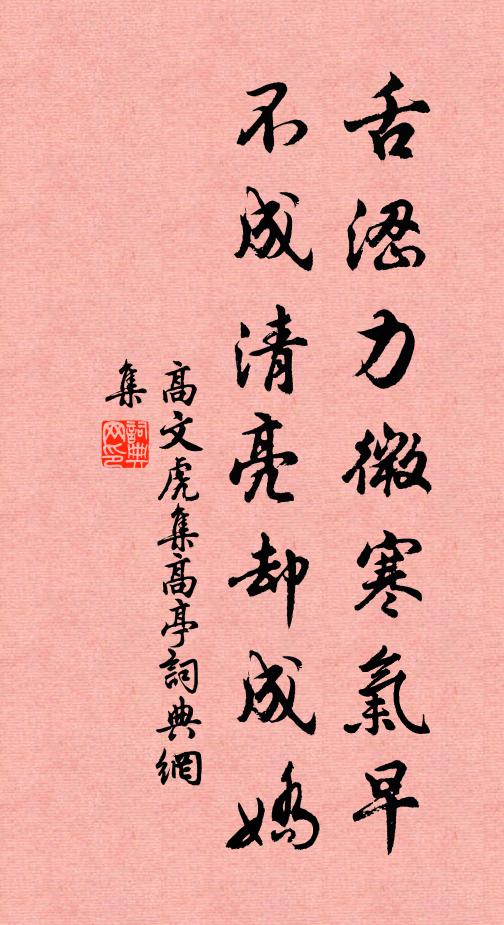 舌澀力微寒氣早
不成清亮却成嬌
高文虎集高亭詞典網
集
詞典網印